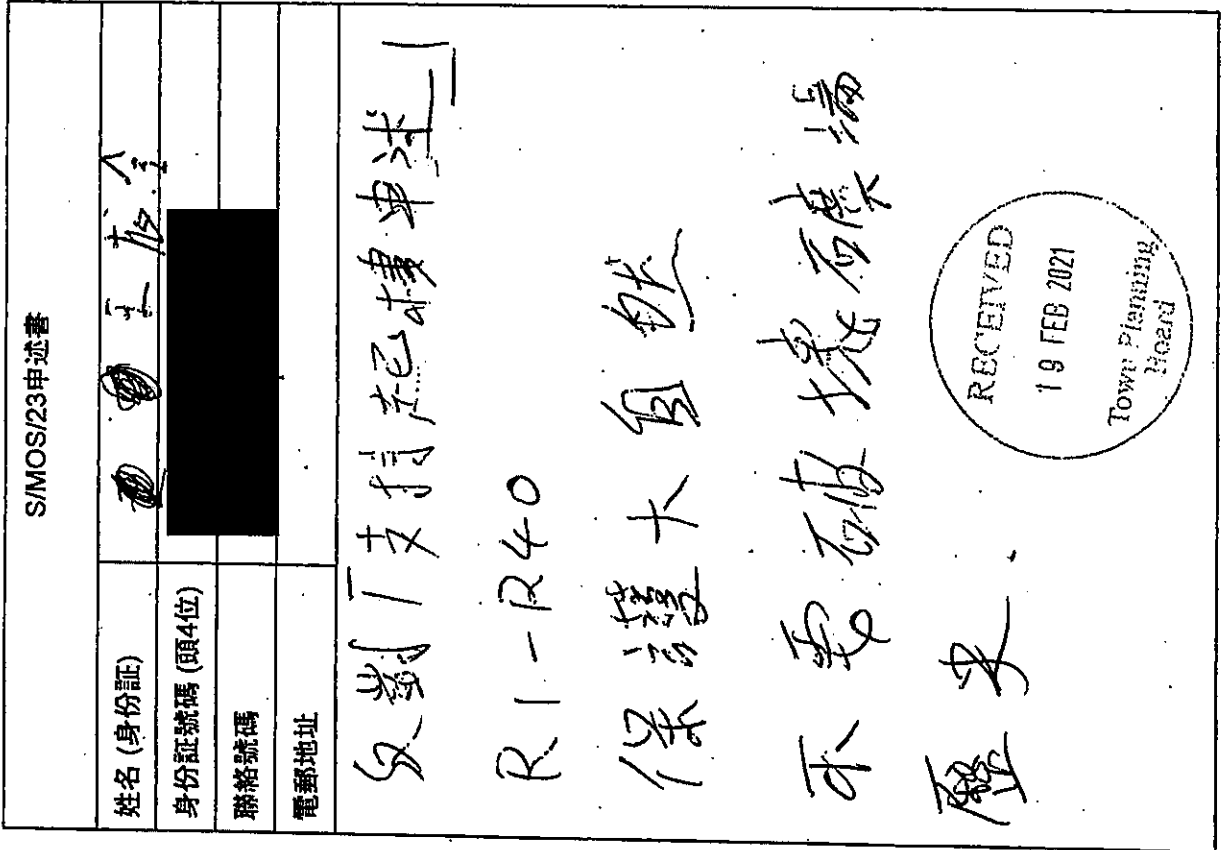 S/MOS/23申述書
姓名 (身份証)
身份証號碼 (頭4位)
聯絡號碼
電郵地址
反對「支持起樓申述」
R1-R40
保護大自然
不要破壞 馬
RECEIVED
19 FEB 2021
Town Planning
Board